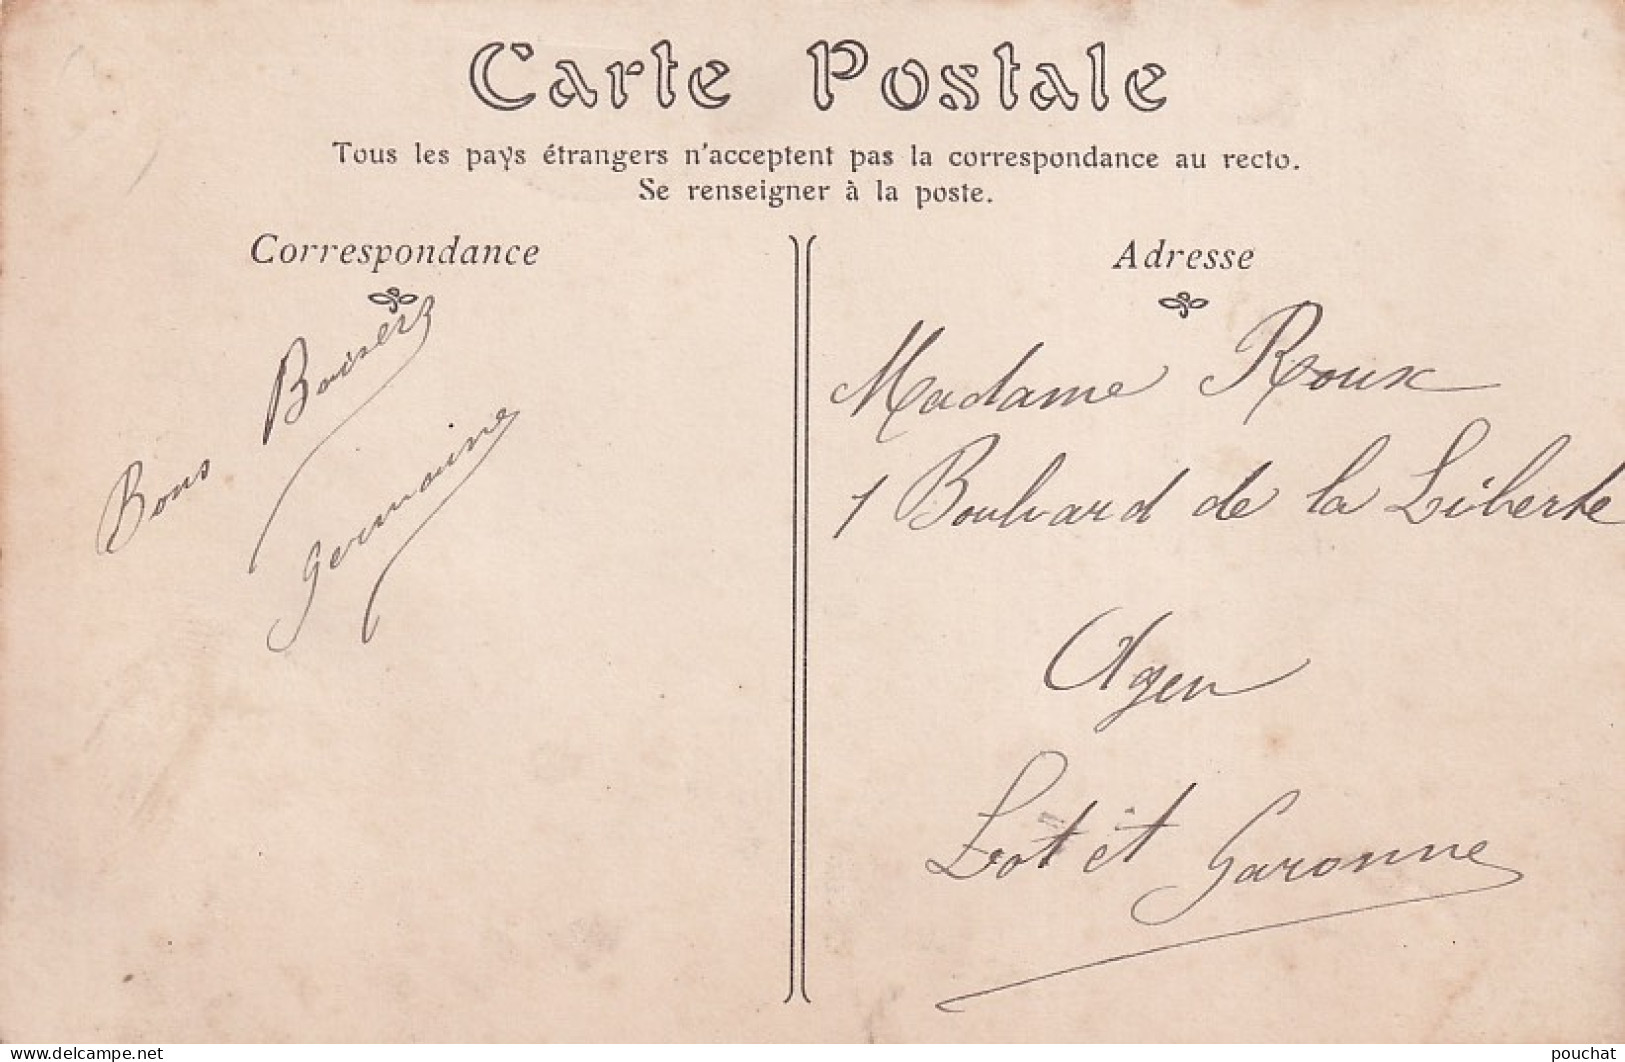 Carte Postale
Tous les pays étrangers n'acceptent pas la correspondance au recto.
Se renseigner à la poste.
Correspondance
Bons Baisers
Germaine
Adresse
Madame Roux
1 Boulvard de la Liberte
Agen
Lot et Garonne
delcampe.net
pouchat